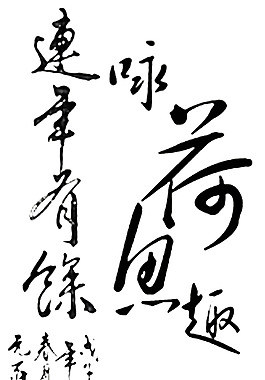 咏荷思趣
連年有餘
戊子年
春月